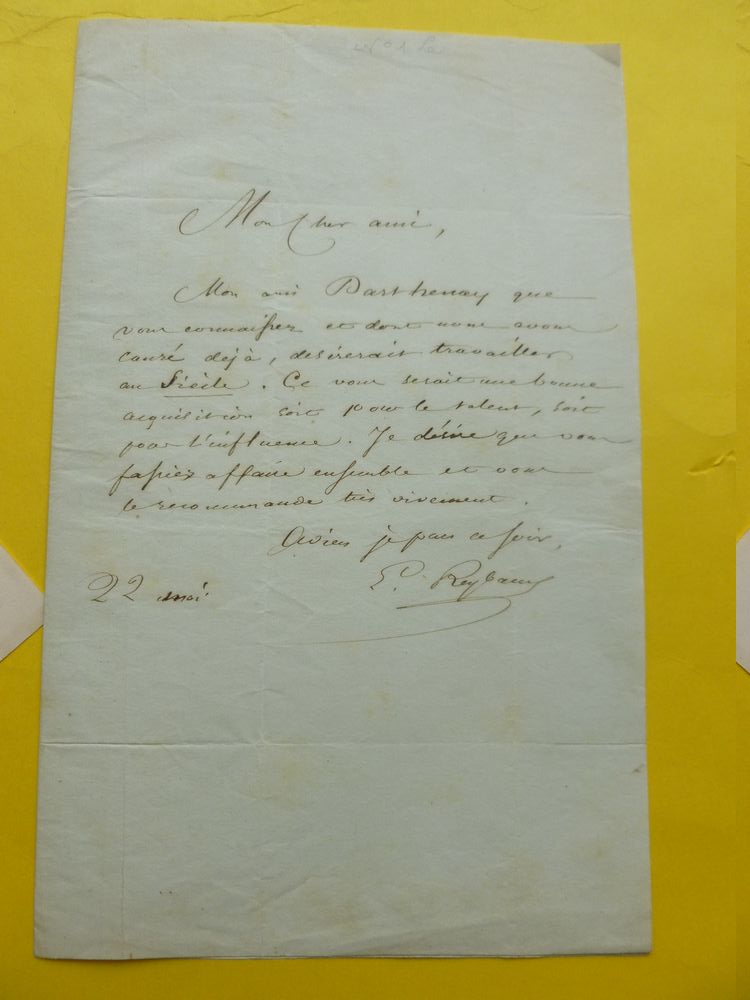 Mon cher ami,
Mon ami Parthenay que
vous connaissez et dont nous avons
causé dejà, desirerait travailler
au Siècle. Ce vous serait une bonne
acquisition soit pour le talent, soit
pour l'influence. Je désire que vous
fassiez affaire ensemble et vous
le recommande très vivement.
je pars ce soir,
22 mai
L. Reybaud